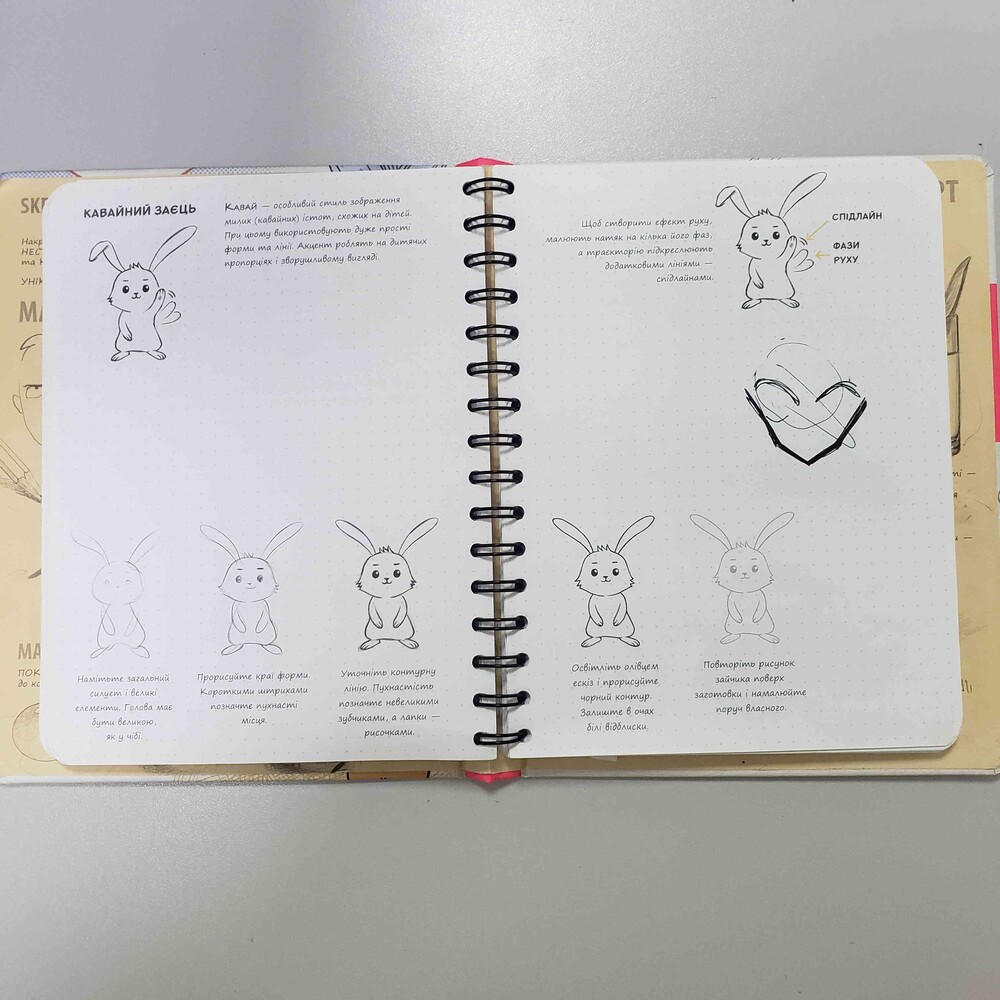 КАВАЙНИЙ ЗАЄЦЬ
Кавай — особливий стиль зображення
милих (кавайних) істот, схожих на дітей.
При цьому використовують дуже прості
форми та лінії. Акцент роблять на дитячих
пропорціях і зворушливому вигляді.
Щоб створити ефект руху,
малюють натяк на кілька його фаз,
а траєкторію підкреслюють
додатковими лініями —
спідлайнами.
СПІДЛАЙН
ФАЗИ
РУХУ
Намітьте загальний
силует і великі
елементи. Голова має
бути великою,
як у чібі.
Прорисуйте краї форми.
Короткими штрихами
позначте пухнасті
місця.
Уточніть контурну
лінію. Пухнастість
позначте невеликими
зубчиками, а лапки —
рисочками.
Освітліть олівцем
ескіз і прорисуйте
чорний контур.
Залиште в очах
білі відблиски.
Повторіть рисунок
зайчика поверх
заготовки і намалюйте
поруч власного.